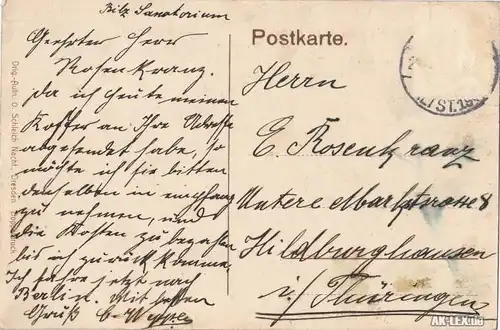 Bilz Sanatorium
Geehrter Herr
Rosenkranz.
da ich heute meinen
Koffer an Ihre Adresse
abgesendet habe, so
möchte ich sie bitten
denselben in empfang
zu nehmen, und
die Kosten zu bezahlen
bis ich zurück komme,
Ich fahre jetzt nach
Berlin. Mit besten
Gruß
Postkarte.
Herrn
E. Rosenkranz
Untere Marktstrasse 8
Hildburghausen
i/ Thüringen
Orig.-Aufn. O. Schleich Nachf., Dresden
AK-LEX